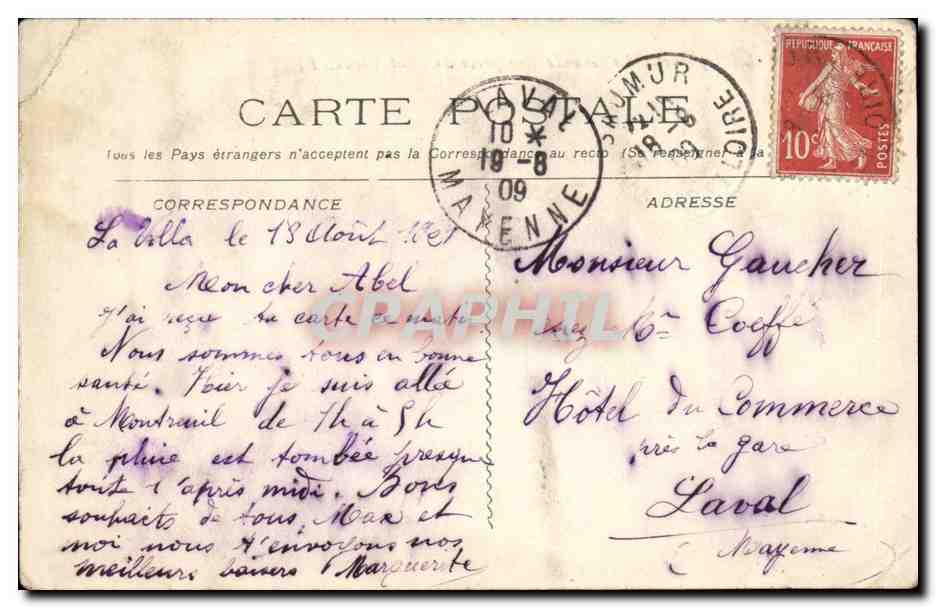 RÉPUBLIQUE FRANÇAISE
10c POSTES
SAUMUR
LOIRE
LAVAL
10 *
19 -8
09
MAYENNE
CARTE POSTALE
Tous les Pays étrangers n'acceptent pas la Correspondance au recto (Se renseigner à la
CORRESPONDANCE
le 18 Août
Mon cher Abel
J'ai reçu ta carte ce matin
Nous sommes tous en bonne
santé. Hier je suis allée
à Montreuil de 1h à 5h
la pluie est tombée presque
toute l'après midi. Bons
souhaits de tous, Max et
moi nous t'envoyons nos
meilleurs baisers Marguerite
ADRESSE
Monsieur Gaucher
chez Mr Coeffé
Hôtel du Commerce
près la gare
Laval
Mayenne
CPAPHIL